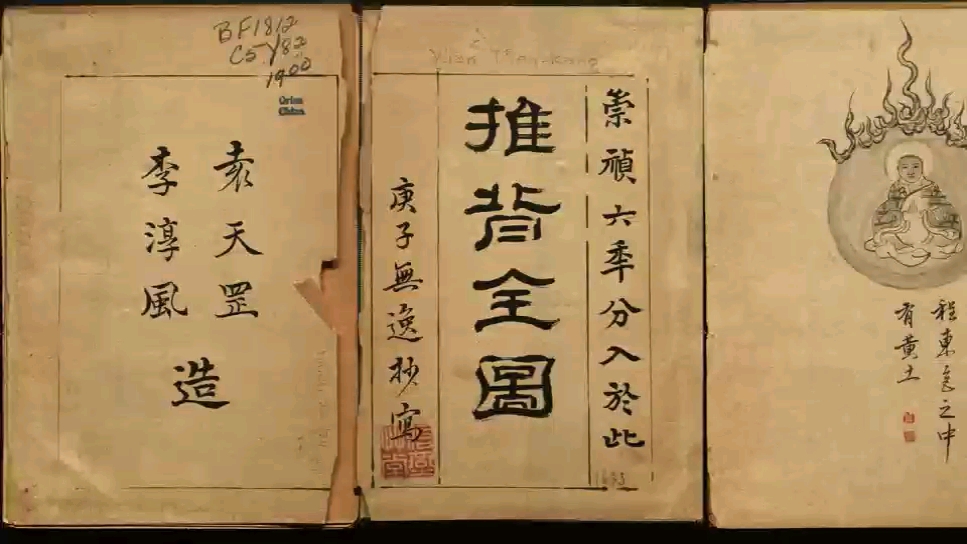 BF1812
C5Y82
1900
Orien
China
袁天罡
李淳風
造
崇禎六季分入於此
推背全圖
庚子無逸抄寫
之中
有黃土